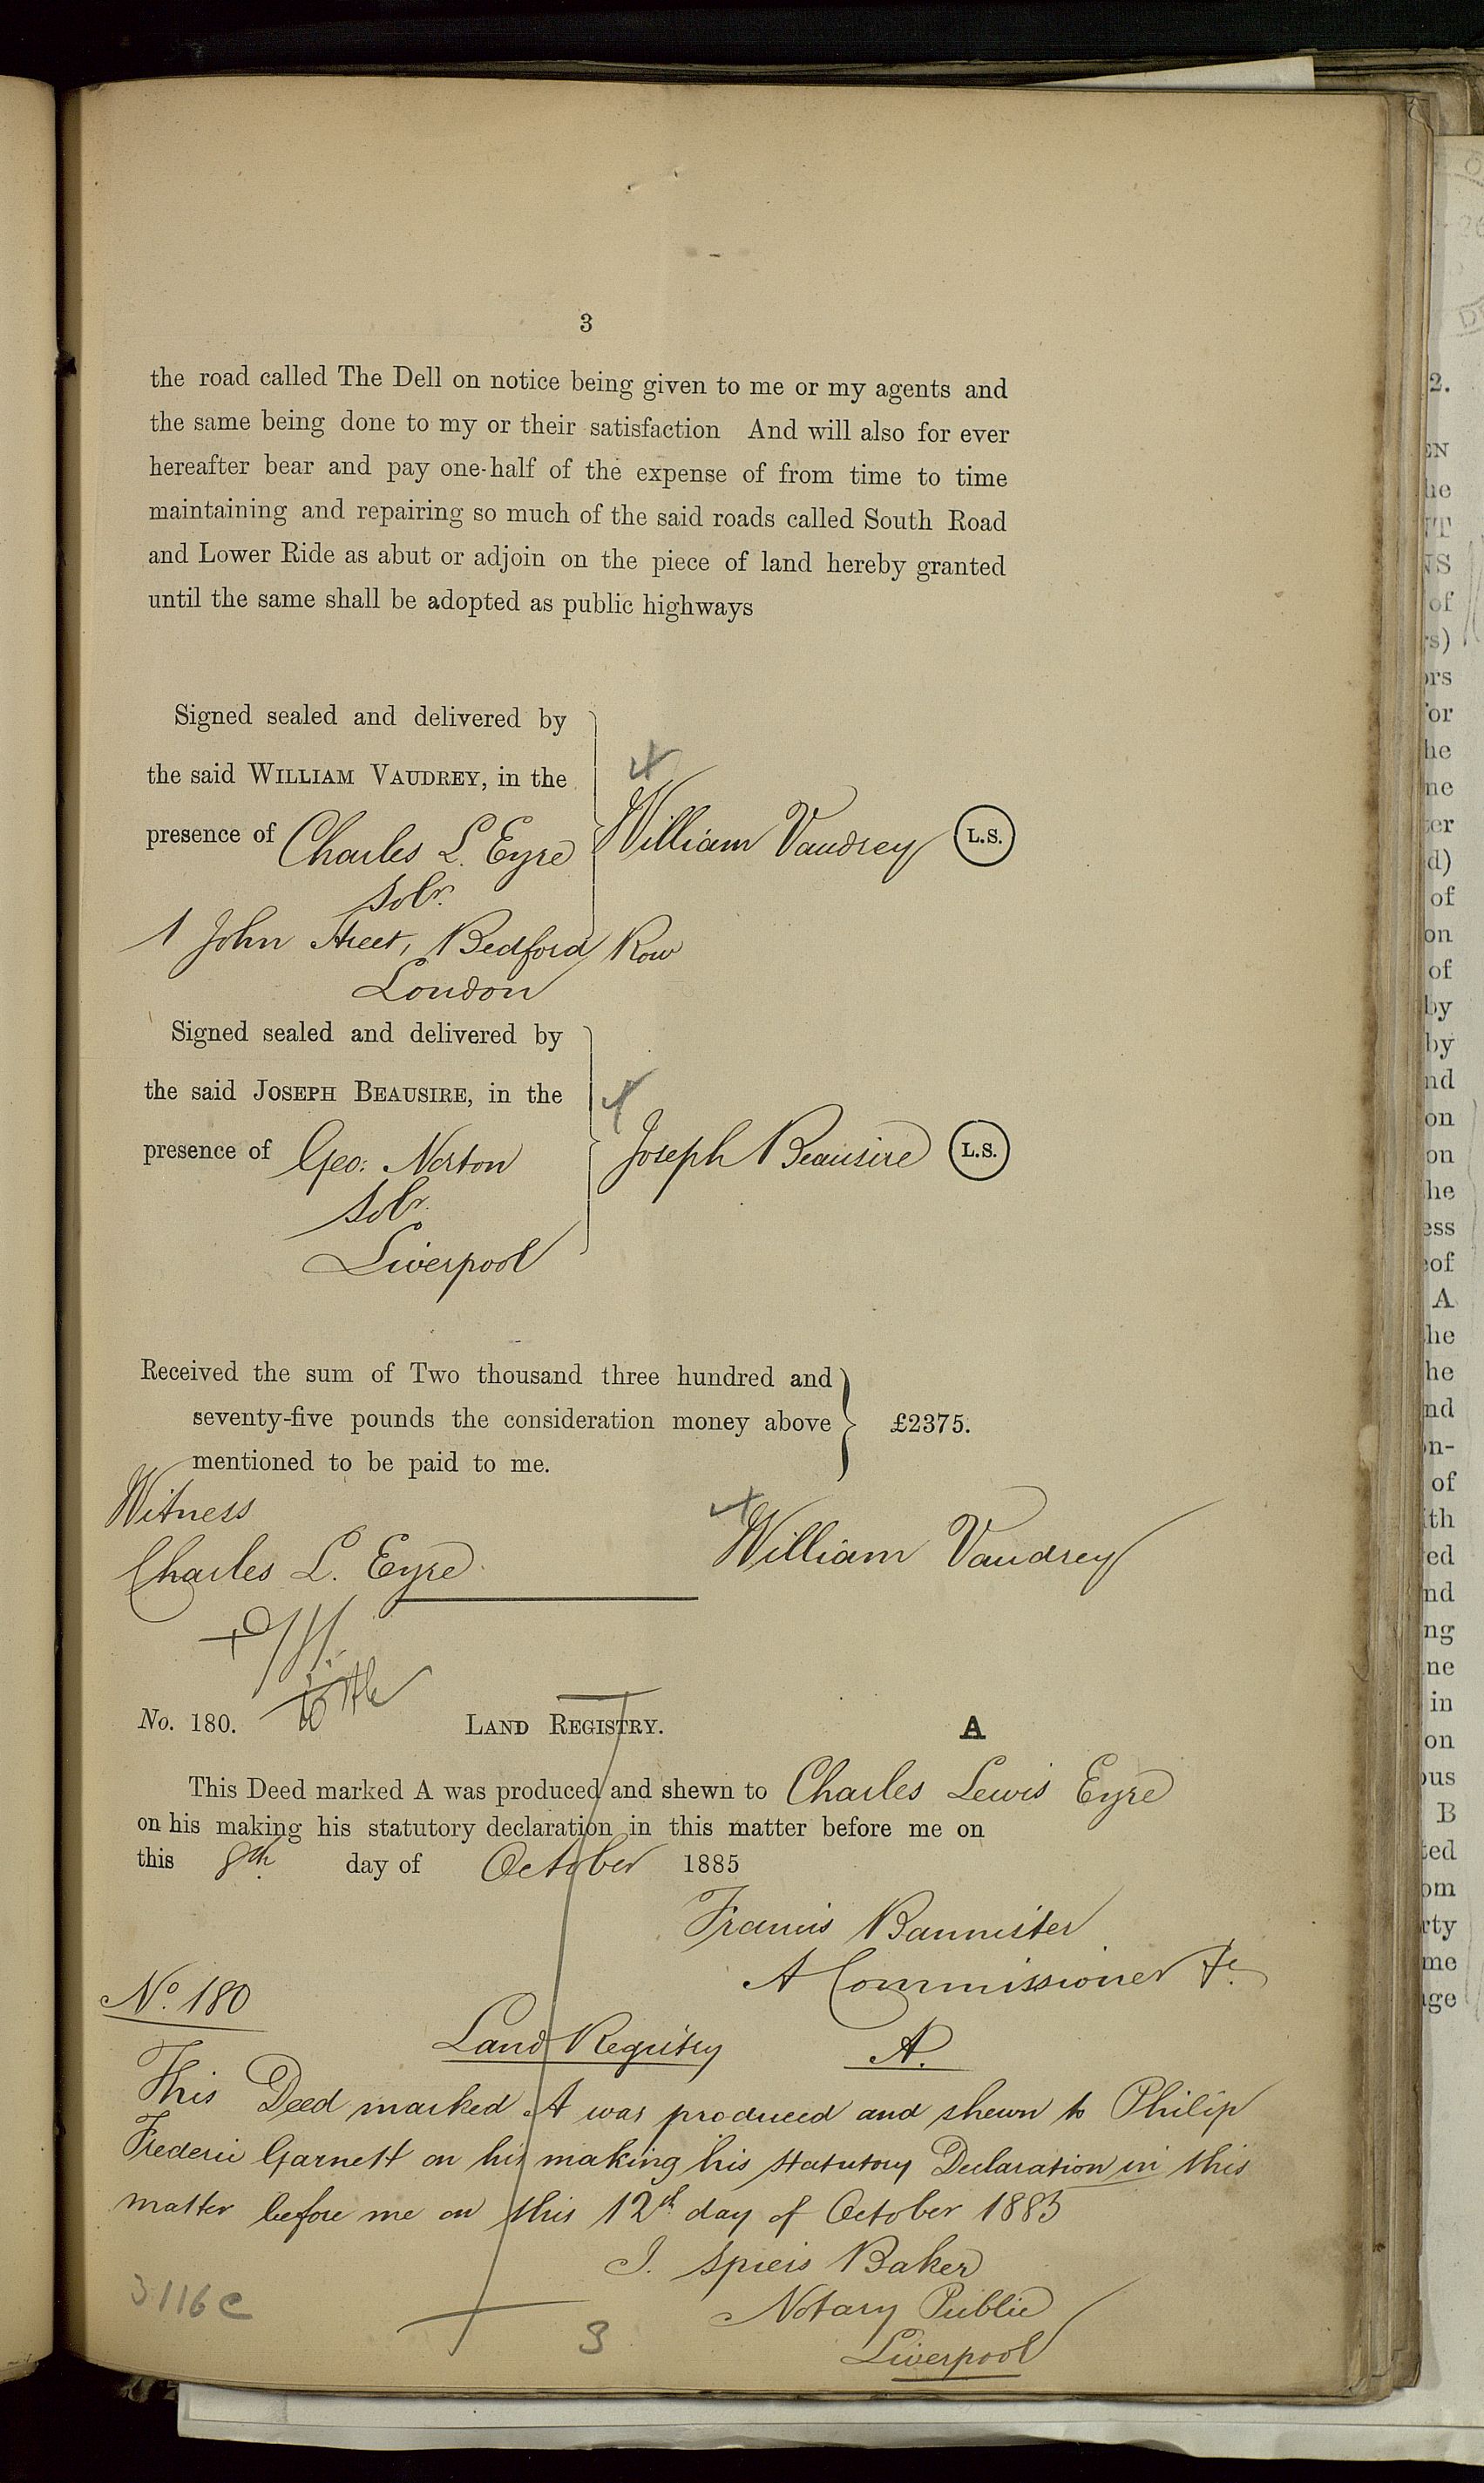 3
the road called The Dell on notice being given to me or my agents and
the same being done to my or their satisfaction And will also for ever
hereafter bear and pay one-half of the expense of from time to time
maintaining and repairing so much of the said roads called South Road
and Lower Ride as abut or adjoin on the piece of land hereby granted
until the same shall be adopted as public highways
Signed sealed and delivered by
the said WILLIAM VAUDREY, in the
presence of Charles L. Eyre William Vaudrey L.S.
Solr.
1 John Street, Bedford Row
London
Signed sealed and delivered by
the said JOSEPH BEAUSIRE, in the
presence of Geo: Norton Joseph Beausire L.S.
Solr.
Liverpool
Received the sum of Two thousand three hundred and
seventy-five pounds the consideration money above £2375.
mentioned to be paid to me.
Witness
Charles L. Eyre William Vaudrey
No. 180. LAND REGISTRY. A
This Deed marked A was produced and shewn to Charles Lewis Eyre
on his making his statutory declaration in this matter before me on
this 8th day of October 1885
Francis Bannister
A Commissioner &c.
No. 180
Land Registry A.
This Deed marked A was produced and shewn to Philip
Frederic Garnett on his making his statutory Declaration in this
matter before me on this 12th day of October 1885
J. Spiers Baker
Notary Public
Liverpool
3116 C
3